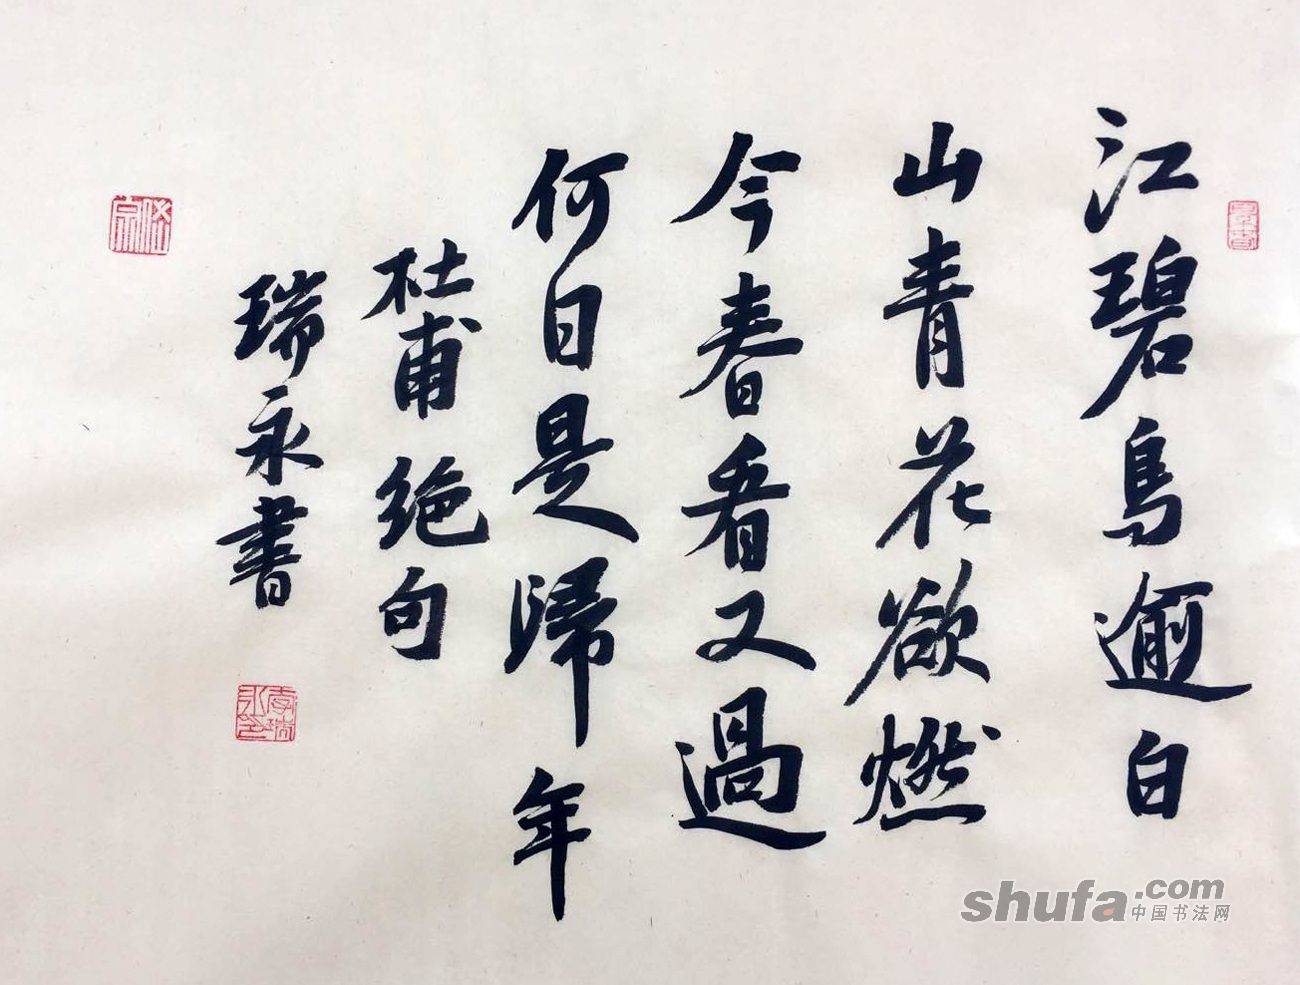 江碧鳥逾白
山青花欲燃
今春看又過
何日是歸年
杜甫絶句
瑞永書
李瑞永印
shufa.com
中国书法网